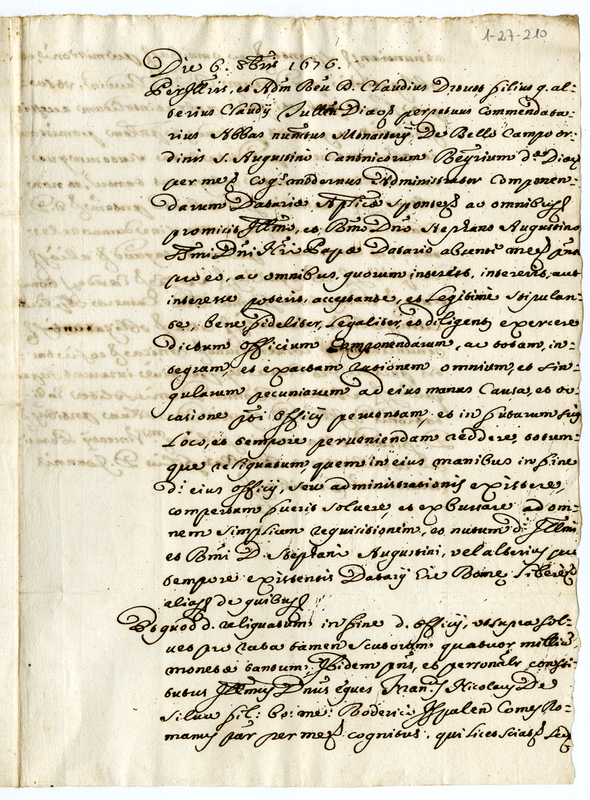 1-27-210
Die 6. 8bris 1676.
Perillris, et Adm Reu D. Claudius filius q. al-
terius Claudij Diac perpetuus Commendata-
rius Abbas nuncus Monasterij De Bello Campo or-
dinis S. Augustini Canonicorum
per me cog.s modernus Administrator Componen-
darum Datariae Aplicae sponte ac omnibus
promisit Illmo, et Rmo Dno Stephano Augustino
Dni Nri Papae Datario absenti me
pro eo, ac omnibus, quorum interest, intererit, aut
interesse poterit, acceptante, et legitime stipulan-
te, bene fideliter, legaliter, et diligenter exercere
dictum officium Componendarum, ac totam, in-
tegram, et exactam rationem omnium, et sin-
gularum pecuniarum ad eius manus Causa, et oc-
casione officij peruentam, et in futurum
Loco, et tempore perueniendam reddere, totum-
que reliquatum, quem in eius manibus in fine
d. eius officij, seu administrationis existere,
compertum fuerit soluere, et exbursare ad om-
nem simplicem requisitionem, et nutum d. Illmi
et Rmi D. Stephani Augustini, vel alterius pro
tempore existentis Datarij hic Romae libere
alias de quibus
Et quod d. reliquatum in fine d. officij, ut supra sol-
uet pro rata tamen scutorum quatuor milliu
moneta tantum Ibidem pns, et personalr consti-
tutus Illmus Dnus eques Nicolaus De
Silua fil: bo: me: Roderici Comes Ro-
manus par per me cognitus. qui licet sciat